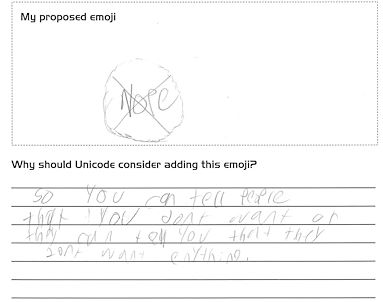 My proposed emoji
Nope
Why should Unicode consider adding this emoji?
so you can tell people
that you dont want or
they can tell you that they
dont want enything.